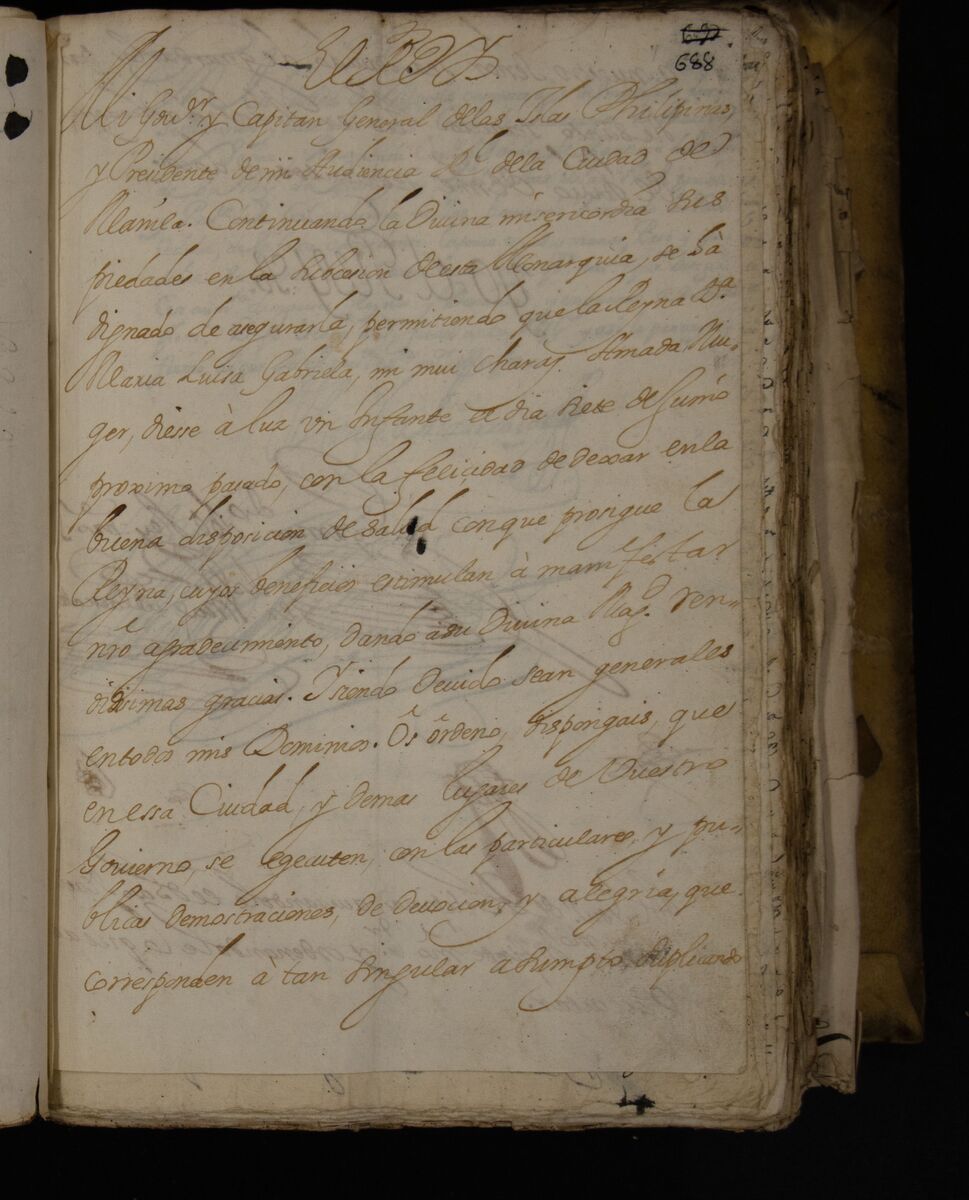 688
El Rey
Mi Gov.or y Capitan General de las Islas Philipinas,
y Presidente de mi Audiencia R.l de la Ciudad de
Manila. Continuando la Divina misericordia sus
piedades en la subcesion de esta Monarquia, se hà
dignado de asegurarla, permitiendo que la Reyna D.a
Maria Luisa Gabriela, mi mui chara y Amada Mu-
ger, diesse à luz un Infante el dia siete de Junio
proximo pasado, con la felicidad de dexar en la
buena disposicion de salud con que prosigue la
Reyna, cuyos beneficios estimulan à manifestar
nrō agradecimiento, dando a su Divina Mag.d ren-
didisimas gracias. Y siendo devido sean generales
en todos mis Dominios. Os ordeno, dispongais, que
en essa Ciudad, y demas lugares de Vuestro
Govierno, se egecuten, con las particulares, y pu-
blicas demostraciones, de devocion, y alegria, que
corresponden a tan singular asumpto, suplicando